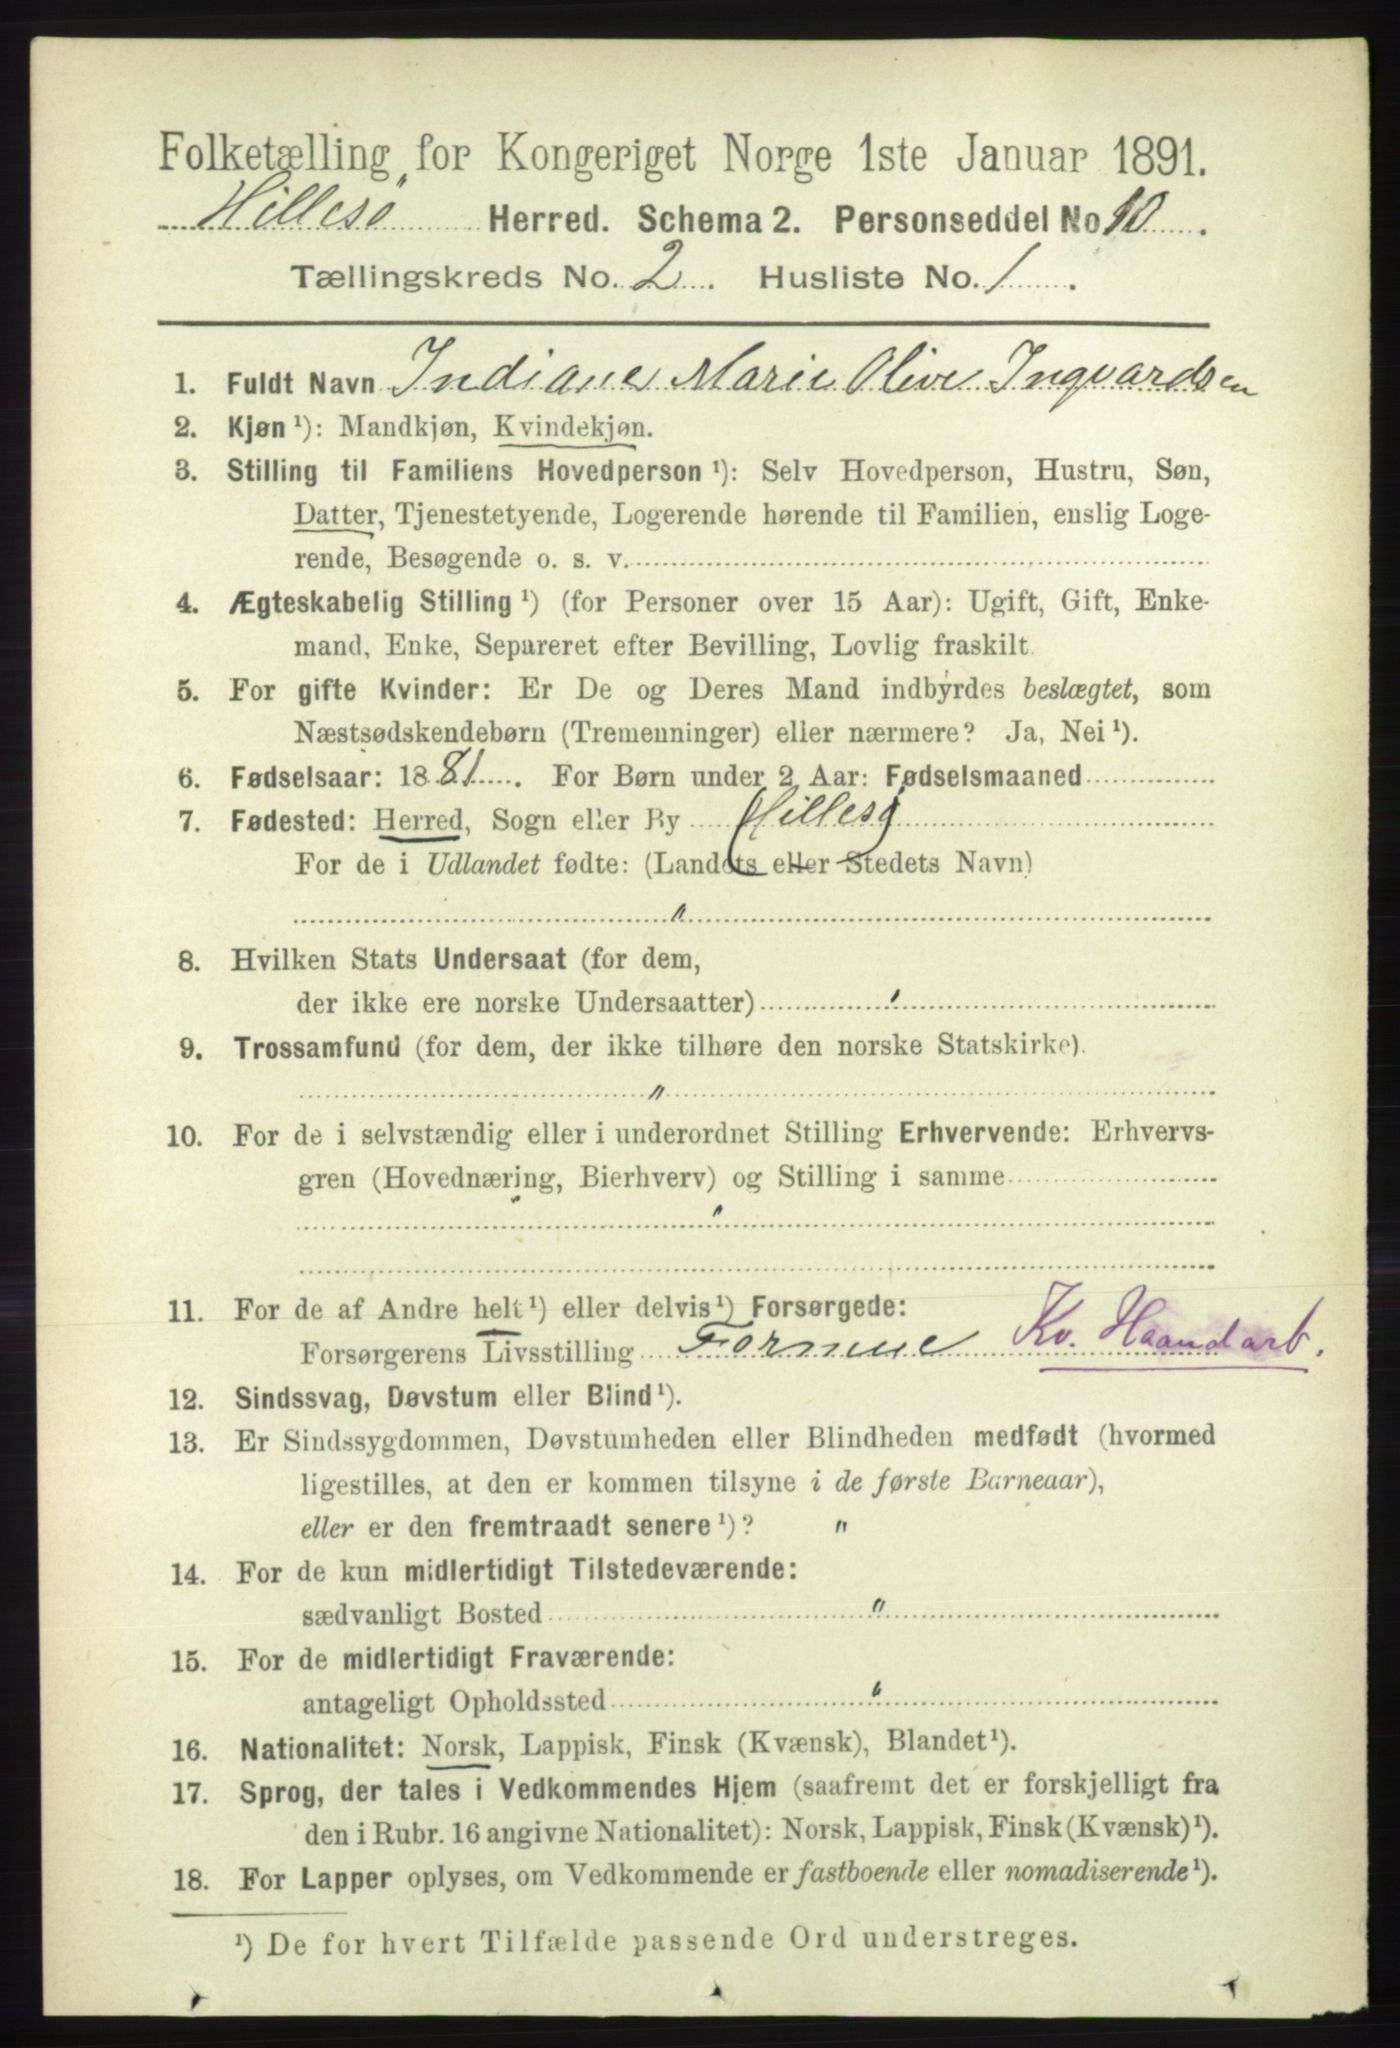 Folketælling for Kongeriget Norge 1ste Januar 1891.
Hillesö Herred. Schema 2. Personseddel No 10.
Tællingskreds No. 2. Husliste No. 1.
1. Fuldt Navn Indiane Marie Olive Ingvardsen
2. Kjøn ¹): Mandkjøn, Kvindekjøn.
3. Stilling til Familiens Hovedperson ¹): Selv Hovedperson, Hustru, Søn,
Datter, Tjenestetyende, Logerende hørende til Familien, enslig Loge-
rende, Besøgende o. s. v.
4. Ægteskabelig Stilling ¹) (for Personer over 15 Aar): Ugift, Gift, Enke-
mand, Enke, Separeret efter Bevilling, Lovlig fraskilt.
5. For gifte Kvinder: Er De og Deres Mand indbyrdes beslægtet, som
Næstsødskendebørn (Tremenninger) eller nærmere? Ja, Nei ¹).
6. Fødselsaar: 1881. For Børn under 2 Aar: Fødselsmaaned
7. Fødested: Herred, Sogn eller By Hillesö
For de i Udlandet fødte: (Landets eller Stedets Navn)
"
8. Hvilken Stats Undersaat (for dem,
der ikke ere norske Undersaatter) "
9. Trossamfund (for dem, der ikke tilhøre den norske Statskirke).
"
10. For de i selvstændig eller i underordnet Stilling Erhvervende: Erhvervs-
gren (Hovednæring, Bierhverv) og Stilling i samme
"
11. For de af Andre helt ¹) eller delvis ¹) Forsørgede:
Forsørgerens Livsstilling Formue Kv. Haandarb.
12. Sindssvag, Døvstum eller Blind ¹).
13. Er Sindssygdommen, Døvstumheden eller Blindheden medfødt (hvormed
ligestilles, at den er kommen tilsyne i de første Barneaar),
eller er den fremtraadt senere ¹)? "
14. For de kun midlertidigt Tilstedeværende:
sædvanligt Bosted "
15. For de midlertidigt Fraværende:
antageligt Opholdssted "
16. Nationalitet: Norsk, Lappisk, Finsk (Kvænsk), Blandet ¹).
17. Sprog, der tales i Vedkommendes Hjem (saafremt det er forskjelligt fra
den i Rubr. 16 angivne Nationalitet): Norsk, Lappisk, Finsk (Kvænsk) ¹).
18. For Lapper oplyses, om Vedkommende er fastboende eller nomadiserende ¹).
¹) De for hvert Tilfælde passende Ord understreges.